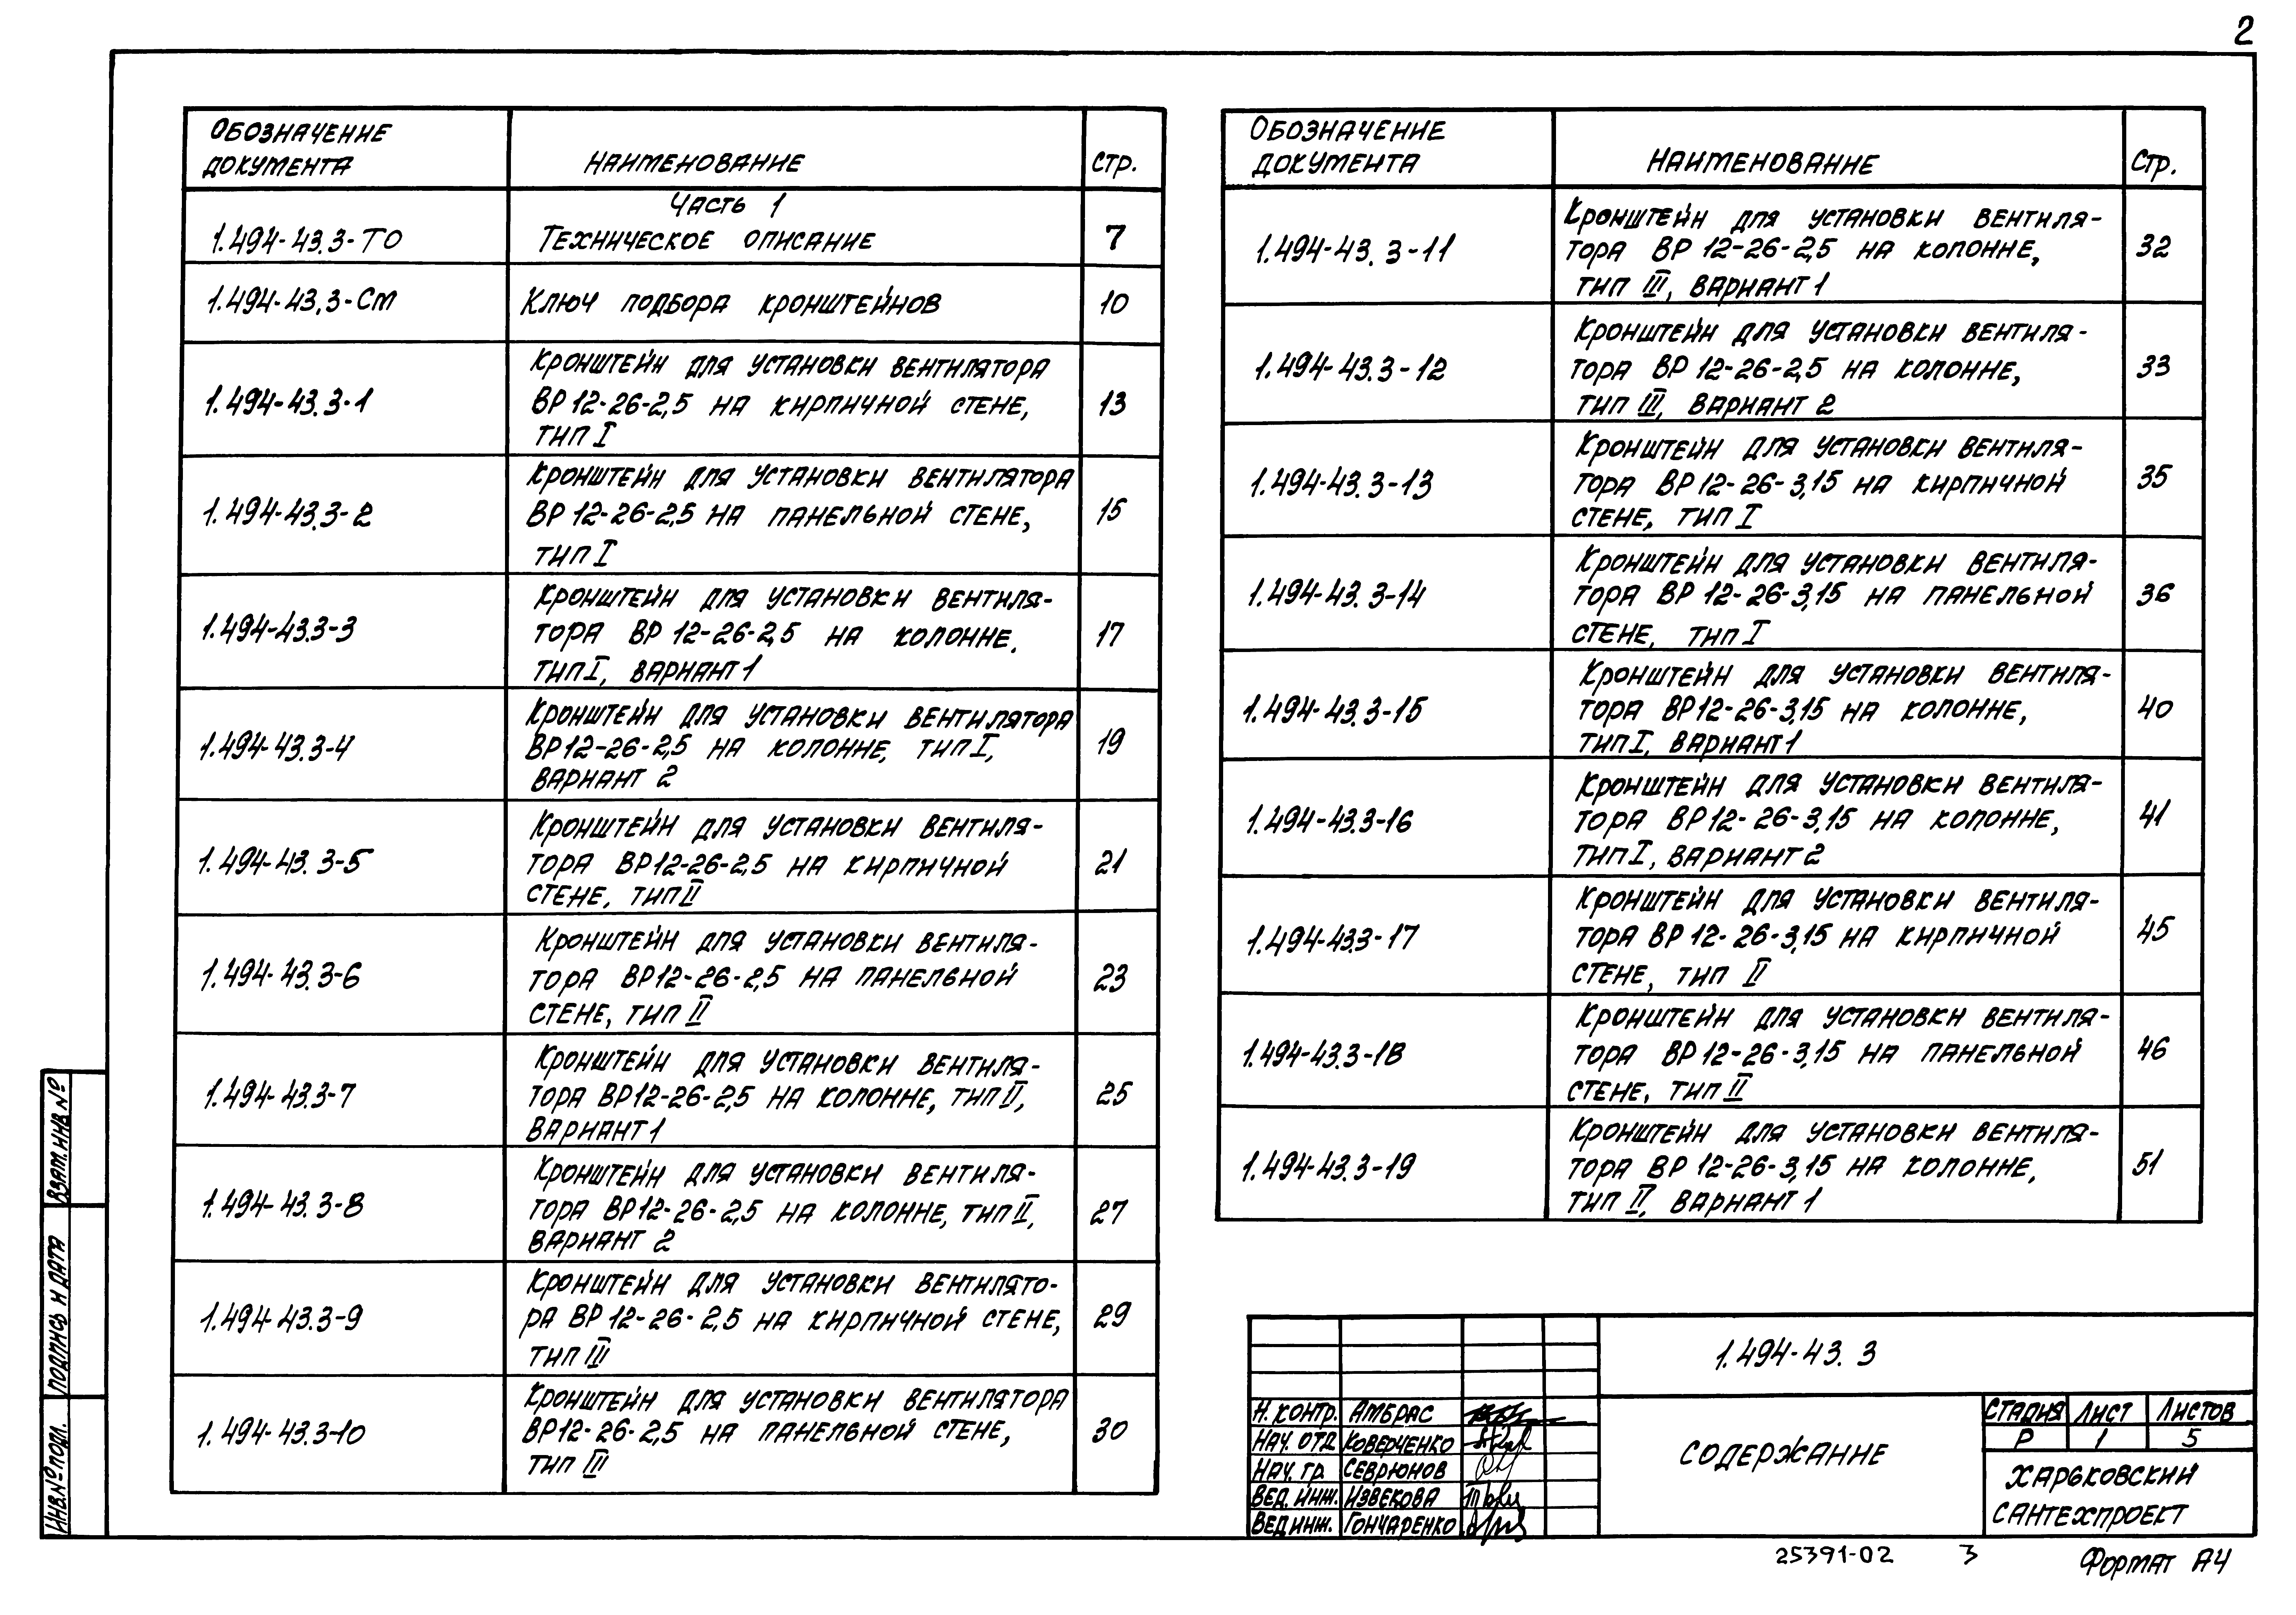 2
Обозначение
документа
Наименование
Стр.
Часть 1
1.494-43.3-ТО
Техническое описание
7
1.494-43.3-СМ
Ключ подбора кронштейнов
10
1.494-43.3-1
Кронштейн для установки вентилятора
ВР 12-26-2,5 на кирпичной стене,
тип I
13
1.494-43.3-2
Кронштейн для установки вентилятора
ВР 12-26-2,5 на панельной стене,
тип I
15
1.494-43.3-3
Кронштейн для установки вентиля-
тора ВР 12-26-2,5 на колонне.
тип I, вариант 1
17
1.494-43.3-4
Кронштейн для установки вентилятора
ВР 12-26-2,5 на колонне, тип I,
вариант 2
19
1.494-43.3-5
Кронштейн для установки вентиля-
тора ВР 12-26-2,5 на кирпичной
стене, тип II
21
1.494-43.3-6
Кронштейн для установки вентиля-
тора ВР 12-26-2,5 на панельной
стене, тип II
23
1.494-43.3-7
Кронштейн для установки вентиля-
тора ВР 12-26-2,5 на колонне, тип II,
вариант 1
25
1.494-43.3-8
Кронштейн для установки вентиля-
тора ВР 12-26-2,5 на колонне, тип II,
вариант 2
27
1.494-43.3-9
Кронштейн для установки вентилято-
ра ВР 12-26-2,5 на кирпичной стене,
тип III
29
1.494-43.3-10
Кронштейн для установки вентилятора
ВР 12-26-2,5 на панельной стене,
тип III
30
Обозначение
документа
Наименование
Стр.
1.494-43.3-11
Кронштейн для установки вентиля-
тора ВР 12-26-2,5 на колонне,
тип III, вариант 1
32
1.494-43.3-12
Кронштейн для установки вентиля-
тора ВР 12-26-2,5 на колонне,
тип III, вариант 2
33
1.494-43.3-13
Кронштейн для установки вентиля-
тора ВР 12-26-3,15 на кирпичной
стене, тип I
35
1.494-43.3-14
Кронштейн для установки вентиля-
тора ВР 12-26-3,15 на панельной
стене, тип I
36
1.494-43.3-15
Кронштейн для установки вентиля-
тора ВР 12-26-3,15 на колонне,
тип I, вариант 1
40
1.494-43.3-16
Кронштейн для установки вентиля-
тора ВР 12-26-3,15 на колонне,
тип I, вариант 2
41
1.494-43.3-17
Кронштейн для установки вентиля-
тора ВР 12-26-3,15 на кирпичной
стене, тип II
45
1.494-43.3-18
Кронштейн для установки вентиля-
тора ВР 12-26-3,15 на панельной
стене, тип II
46
1.494-43.3-19
Кронштейн для установки вентиля-
тора ВР 12-26-3,15 на колонне,
тип II, вариант 1
51
Взам. инв №
Подпись и дата
Инв.№ подл.
1.494-43.3
Н. контр. Амбрас
Нач. отд. Коверченко
Нач. гр. Севрюнов
Вед. инж. Извекова
Вед. инж. Гончаренко
Содержание
Стадия Лист Листов
Р 1 5
Харьковский
Сантехпроект
25391-02 3
Формат А4